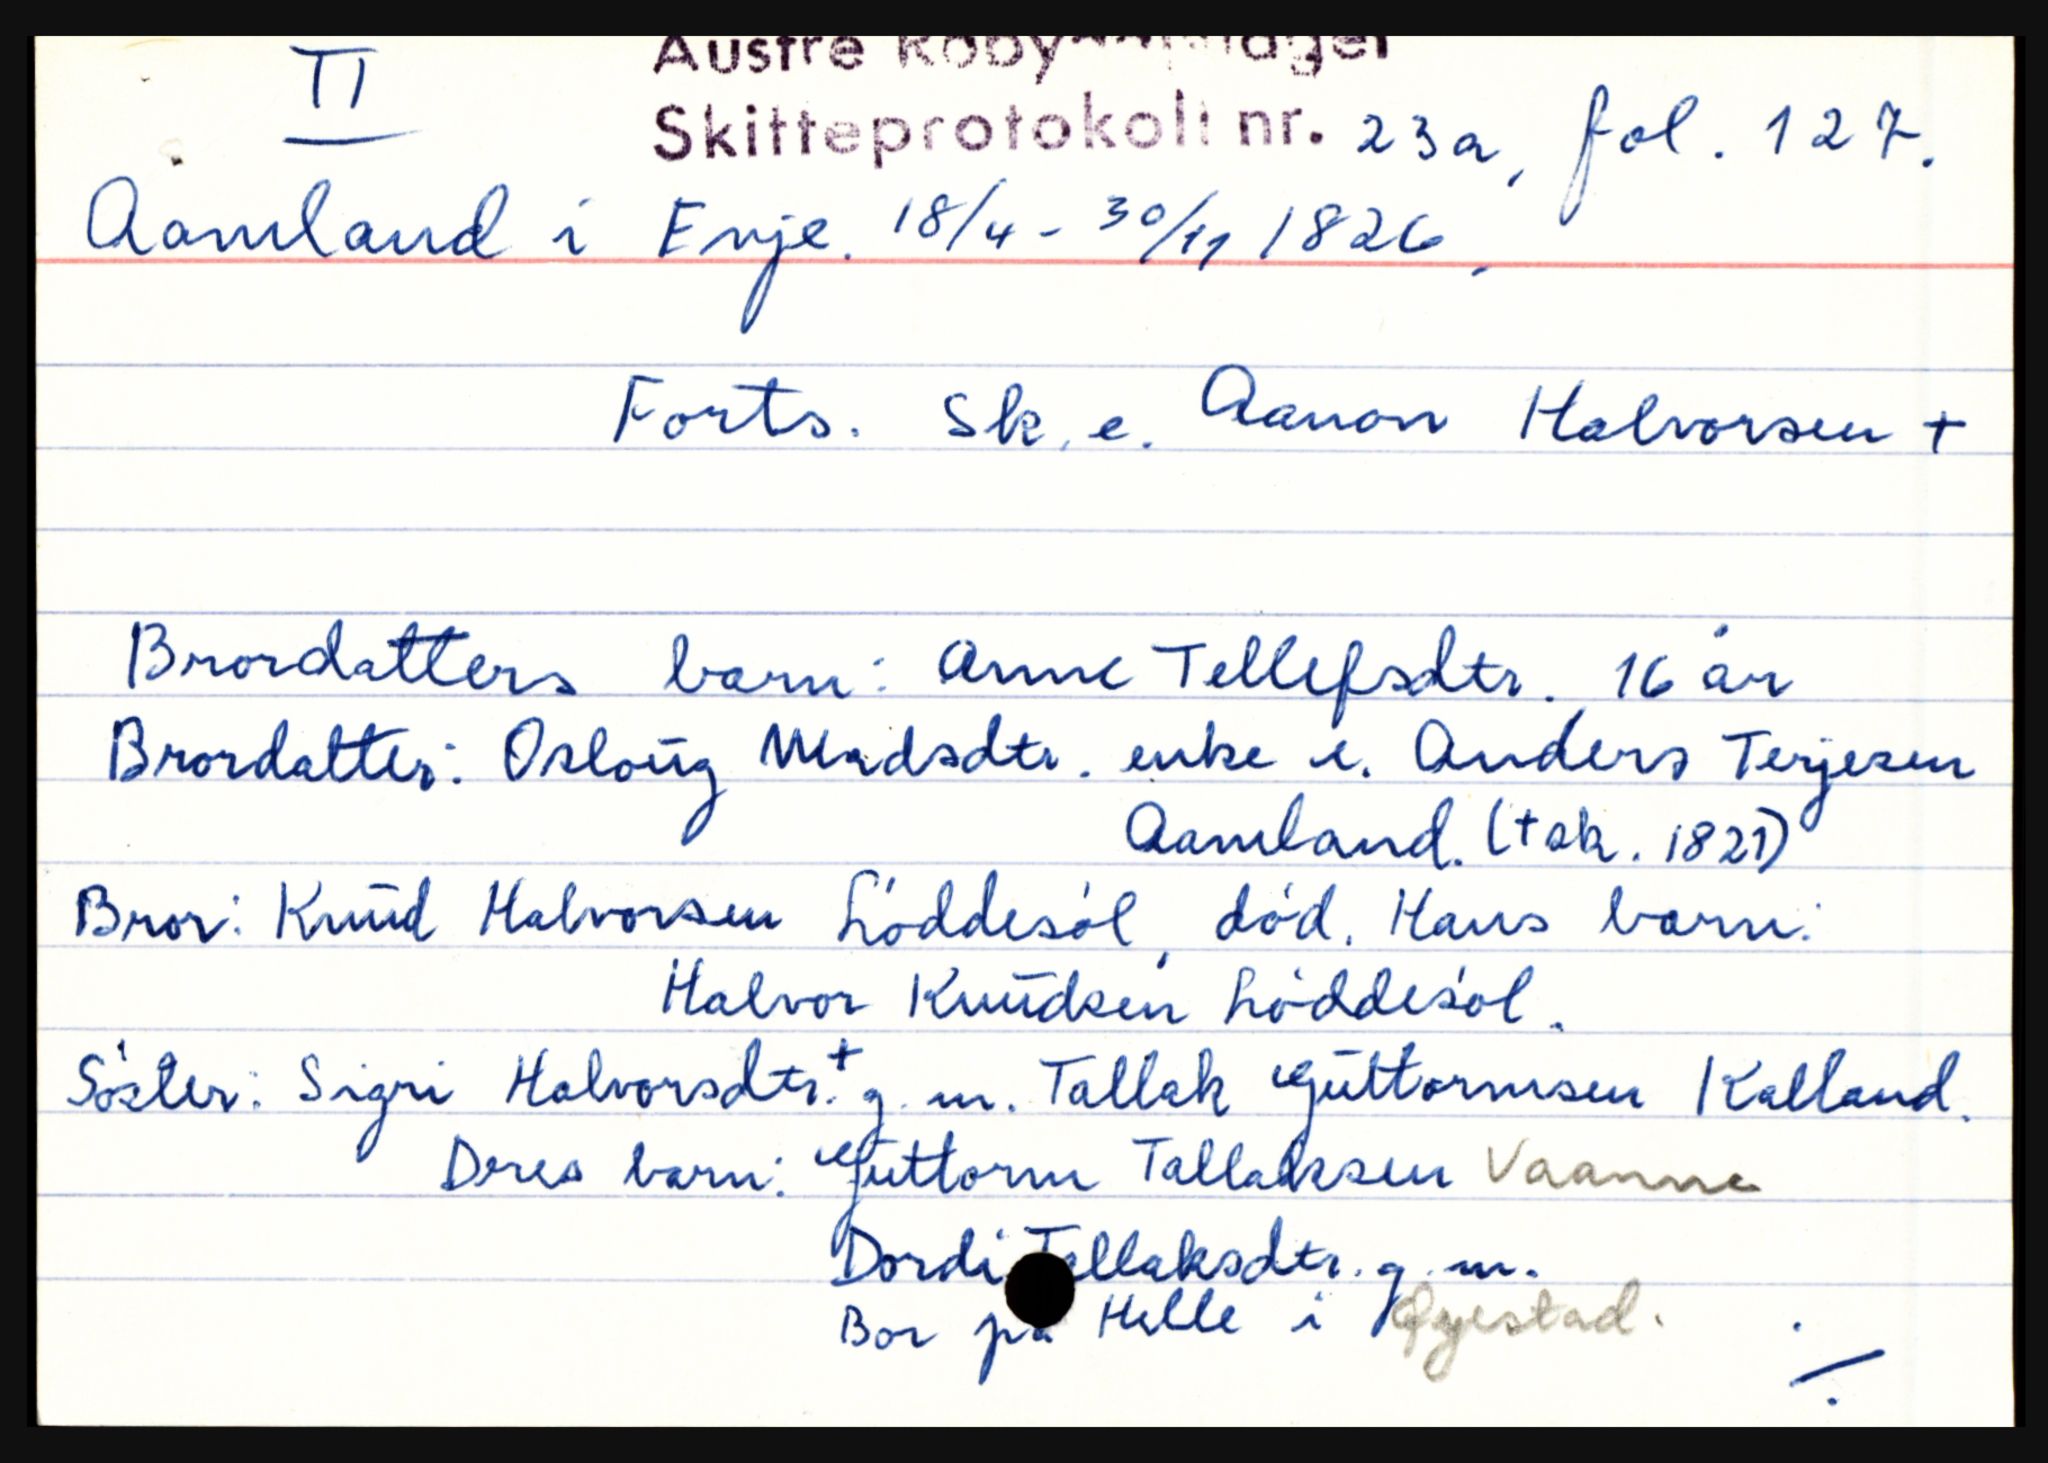 II
Austre Råbyggelaget
Skifteprotokoll nr. 23a, fol. 127.
Aamland i Evje. 18/4 - 30/11 1826.
Forts. Sk. e. Aanon Halvorsen +
Brordatters barn: Anne Tellefsdtr. 16 år
Brordatter: Osloug Madsdtr. enke e. Anders Terjesen
Aamland. (+ sk. 1821)
Bror: Knud Halvorsen Löddesöl, död. Hans barn:
Halvor Knudsen Löddesöl.
Söster: Sigri Halvorsdtr. + g. m. Tallak Guttormsen Kalland.
Deres barn: Guttorm Tallaksen Vaanne
Dordi Tallaksdtr. g. m.
Bor på Helle i Øyestad.